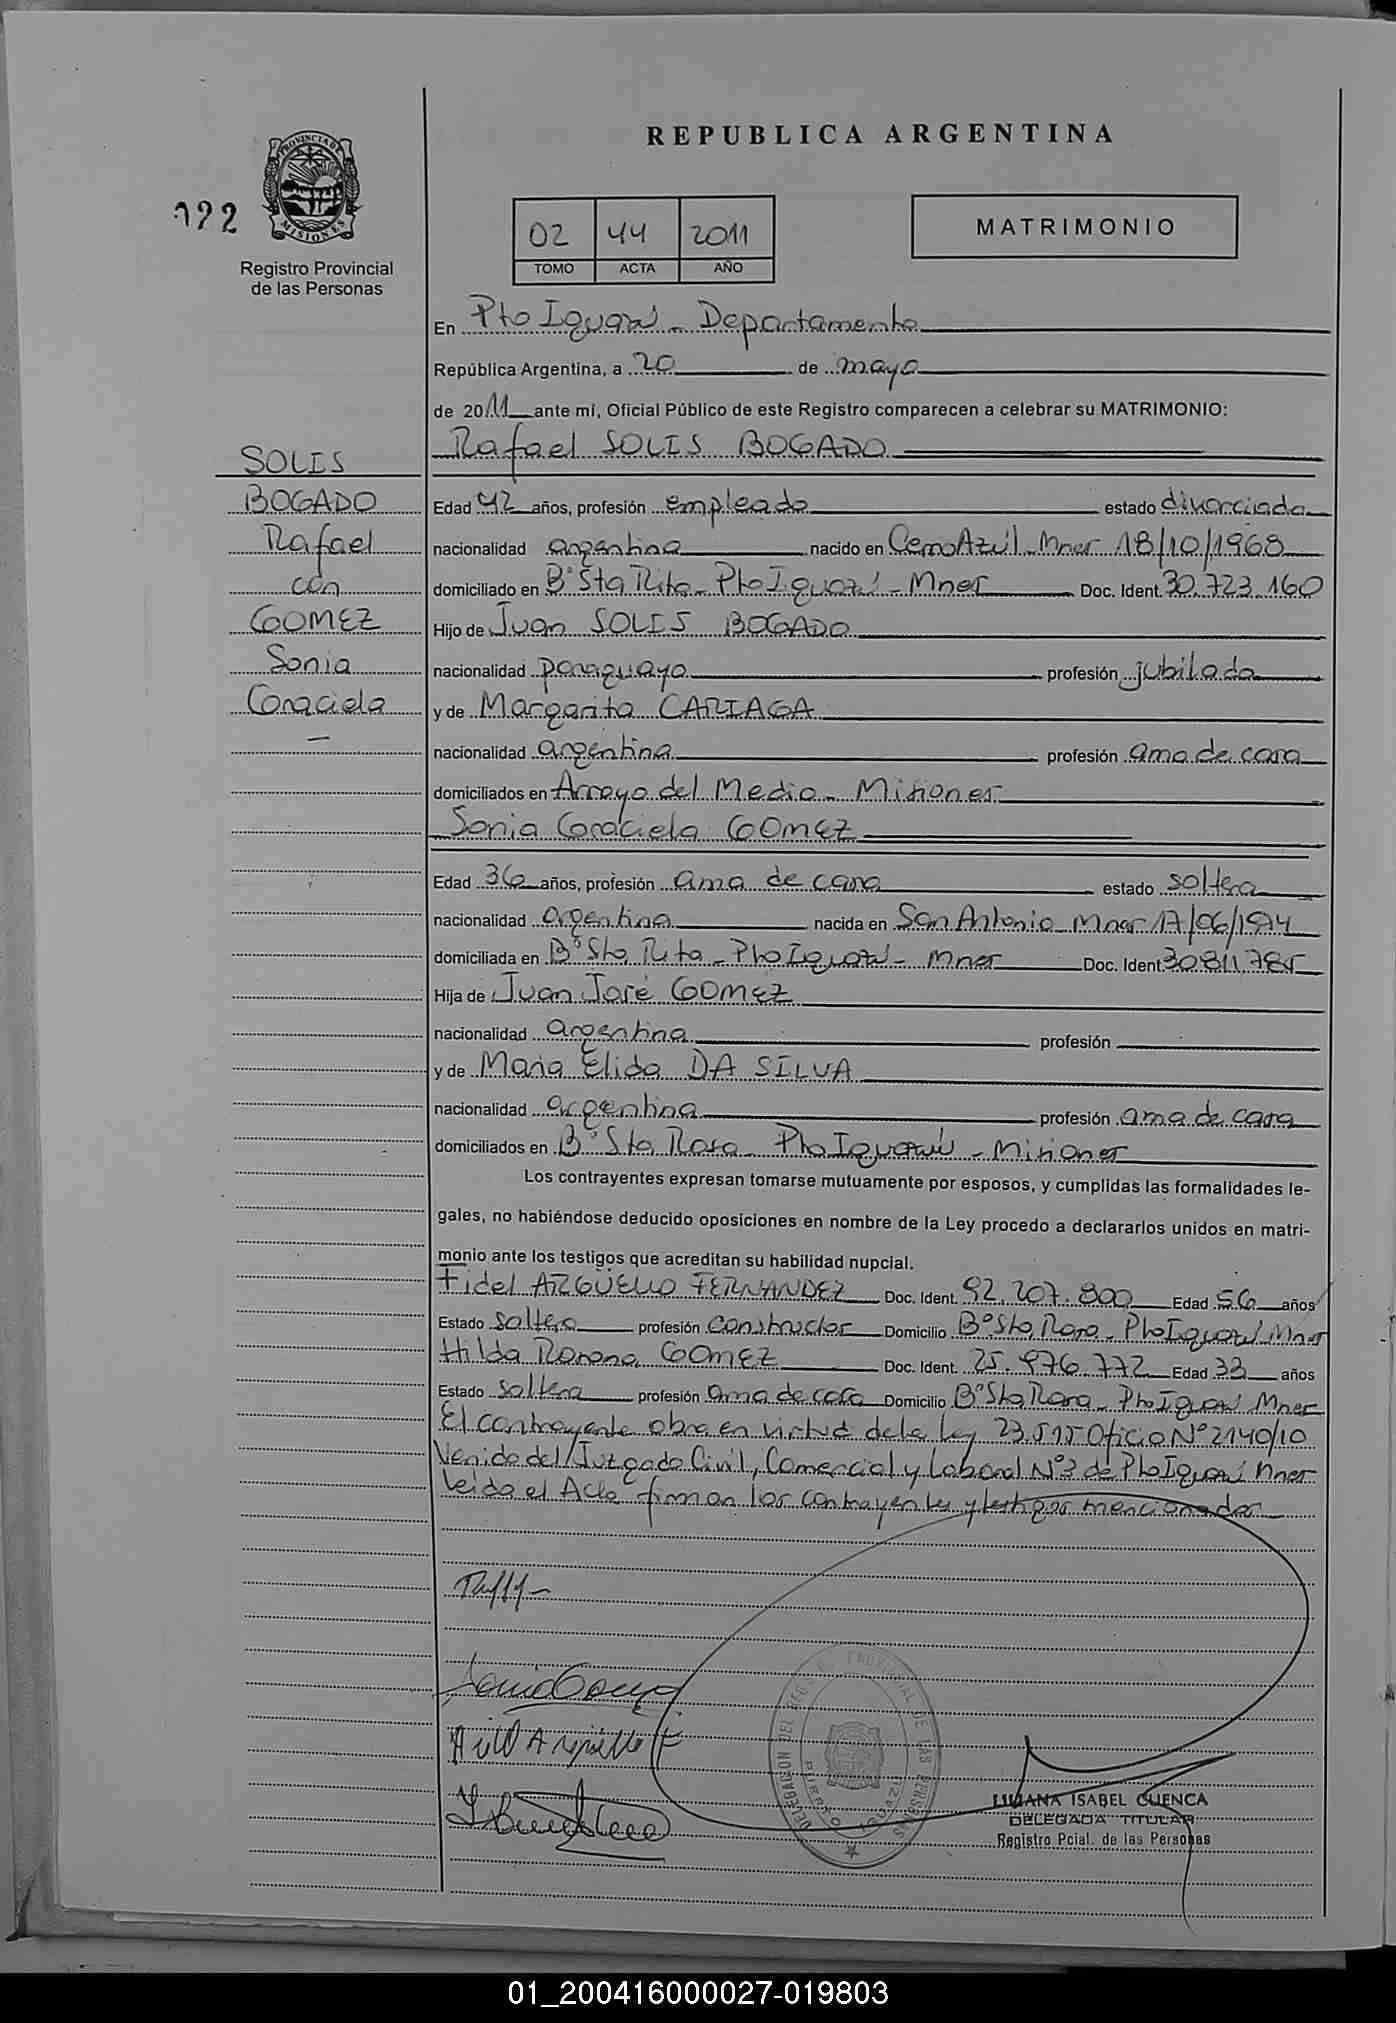 REPUBLICA ARGENTINA
PROVINCIA DE
MISIONES
122
Registro Provincial
de las Personas
02 44 2011
TOMO ACTA AÑO
MATRIMONIO
SOLIS
BOGADO
Rafael
con
GOMEZ
Sonia
Graciela
En Pto Iguazú - Departamento
República Argentina, a 20 de mayo
de 2011 ante mí, Oficial Público de este Registro comparecen a celebrar su MATRIMONIO:
Rafael SOLIS BOGADO
Edad 42 años, profesión empleado estado divorciado
nacionalidad argentina nacido en Cerro Azúl - Mnes 18/10/1968
domiciliado en B° Sta Rita - Pto Iguazú - Mnes Doc. Ident. 30.723.160
Hijo de Juan SOLIS BOGADO
nacionalidad paraguaya profesión jubilado
y de Margarita CARIAGA
nacionalidad argentina profesión ama de casa
domiciliados en Arroyo del Medio - Misiones
Sonia Graciela GOMEZ
Edad 36 años, profesión ama de casa estado soltera
nacionalidad argentina nacida en San Antonio - Mnes 17/06/1974
domiciliada en B° Sta Rita - Pto Iguazú - Mnes Doc. Ident 30.811.785
Hija de Juan José GOMEZ
nacionalidad argentina profesión
y de Maria Elida DA SILVA
nacionalidad argentina profesión ama de casa
domiciliados en B° Sta Rosa - Pto Iguazú - Misiones
Los contrayentes expresan tomarse mutuamente por esposos, y cumplidas las formalidades le-
gales, no habiéndose deducido oposiciones en nombre de la Ley procedo a declararlos unidos en matri-
monio ante los testigos que acreditan su habilidad nupcial.
Fidel ARGÜELLO FERNANDEZ Doc. Ident. 92.207.800 Edad 56 años
Estado soltero profesión constructor Domicilio B° Sta Rosa - Pto Iguazú Mnes
Hilda Rosana GOMEZ Doc. Ident. 25.976.772 Edad 33 años
Estado soltera profesión ama de casa Domicilio B° Sta Rosa - Pto Iguazú Mnes
El contrayente obra en virtud de la Ley 23.515 Oficio N° 2140/10
Venido del Juzgado Civil, Comercial y Laboral N° 3 de Pto Iguazú Mnes
leida el Acta firman los contrayentes y testigos mencionados
DELEGACION DEL REGISTRO PROVINCIAL DE LAS PERSONAS
PUERTO IGUAZU
LILIANA ISABEL CUENCA
DELEGADA TITULAR
Registro Pcial. de las Personas
01_200416000027-019803